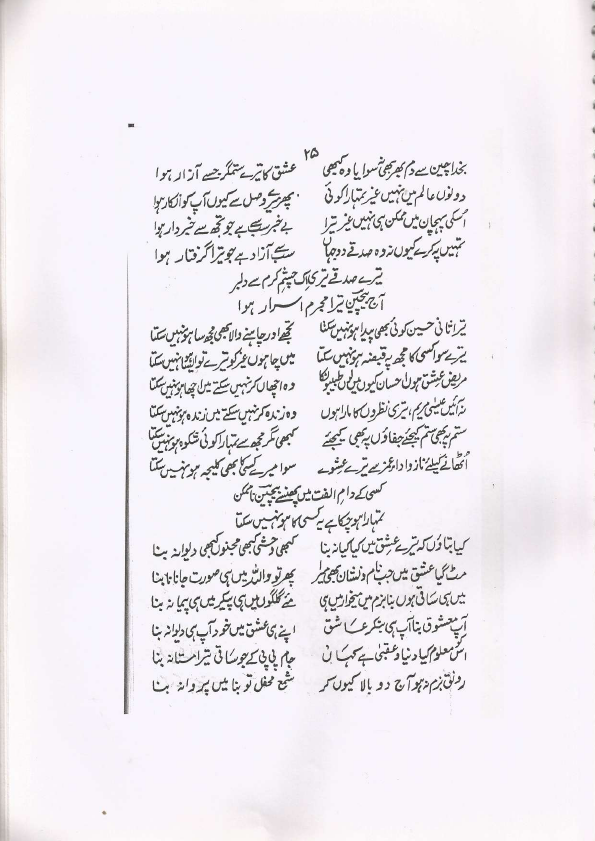 ۲۵
بخدا چین سے دم بھر بھی نہ سویا وہ کبھی عشق کا تیرے ستمگر جسے آزار ہوا
دونوں عالم میں نہیں غیر تمہارا کوئی پھر میرے وصل سے کیوں آپ کو انکار ہوا
اُسکی پہچان میں ممکن ہی نہیں غیر تیرا بے خبر سب سے ہے جو تجھ سے خبردار ہوا
تمہیں پہ کرے کیوں نہ وہ صدقے دو جہاں سب سے آزاد ہے جو تیرا گرفتار ہوا
تیرے صدقے تیری اک چشم کرم سے دلبر
آج بیچین تیرا محرم اسرار ہوا
تیرا ثانی حسین کوئی بھی پیدا ہو نہیں سکتا تجھے اور چاہنے والا بھی مجھ سا ہو نہیں سکتا
تیرے سوا کسی کا مجھ پہ قبضہ ہو نہیں سکتا میں چاہوں غیر کو تیرے تو ایسا ہو نہیں سکتا
مریضِ عشق ہوں احسان کیوں میں لوں طبیبوں کا وہ اچھا کر نہیں سکتے میں اچھا ہو نہیں سکتا
نہ آئیں عیسیٰ مریم، تیری نظروں کا مارا ہوں وہ زندہ کر نہیں سکتے میں زندہ ہو نہیں سکتا
ستم پہ بھی ستم کیجئے جفاؤں پہ بھی کیجئے کبھی مگر مجھ سے تمہارا کوئی شکوہ ہو نہیں سکتا
اُٹھانے کیلئے ناز و ادا و غمزے تیرے عشوے سوا میرے کسی کا بھی کلیجہ ہو نہیں سکتا
کسی کے دامِ الفت میں پھنسے بیچین ناممکن
تمہارا ہو چکا ہے یہ کسی کا ہو نہیں سکتا
کیا بتاؤں کہ تیرے عشق میں کیا کیا نہ بنا کبھی وحشی کبھی مجنوں کبھی دیوانہ بنا
مٹ گیا عشق میں جب نام و نشان بھی میرا پھر تو واللہ میں ہی صورت جانانہ بنا
میں ہی ساقی ہوں بنا بزم میں میخوار میں ہی مئے گلگوں میں ہی پیکر میں ہی پیمانہ بنا
آپ معشوق بنا آپ ہی بنکر عاشق اپنے ہی عشق میں خود آپ ہی دیوانہ بنا
اس کو معلوم کیا دنیا و عقبیٰ ہے کہاں جام پی پی کے جو ساقی تیرا مستانہ بنا
رونقِ بزم نہ ہو آج دوبالا کیوں کر شمع محفل تو بنا میں پروانہ بنا